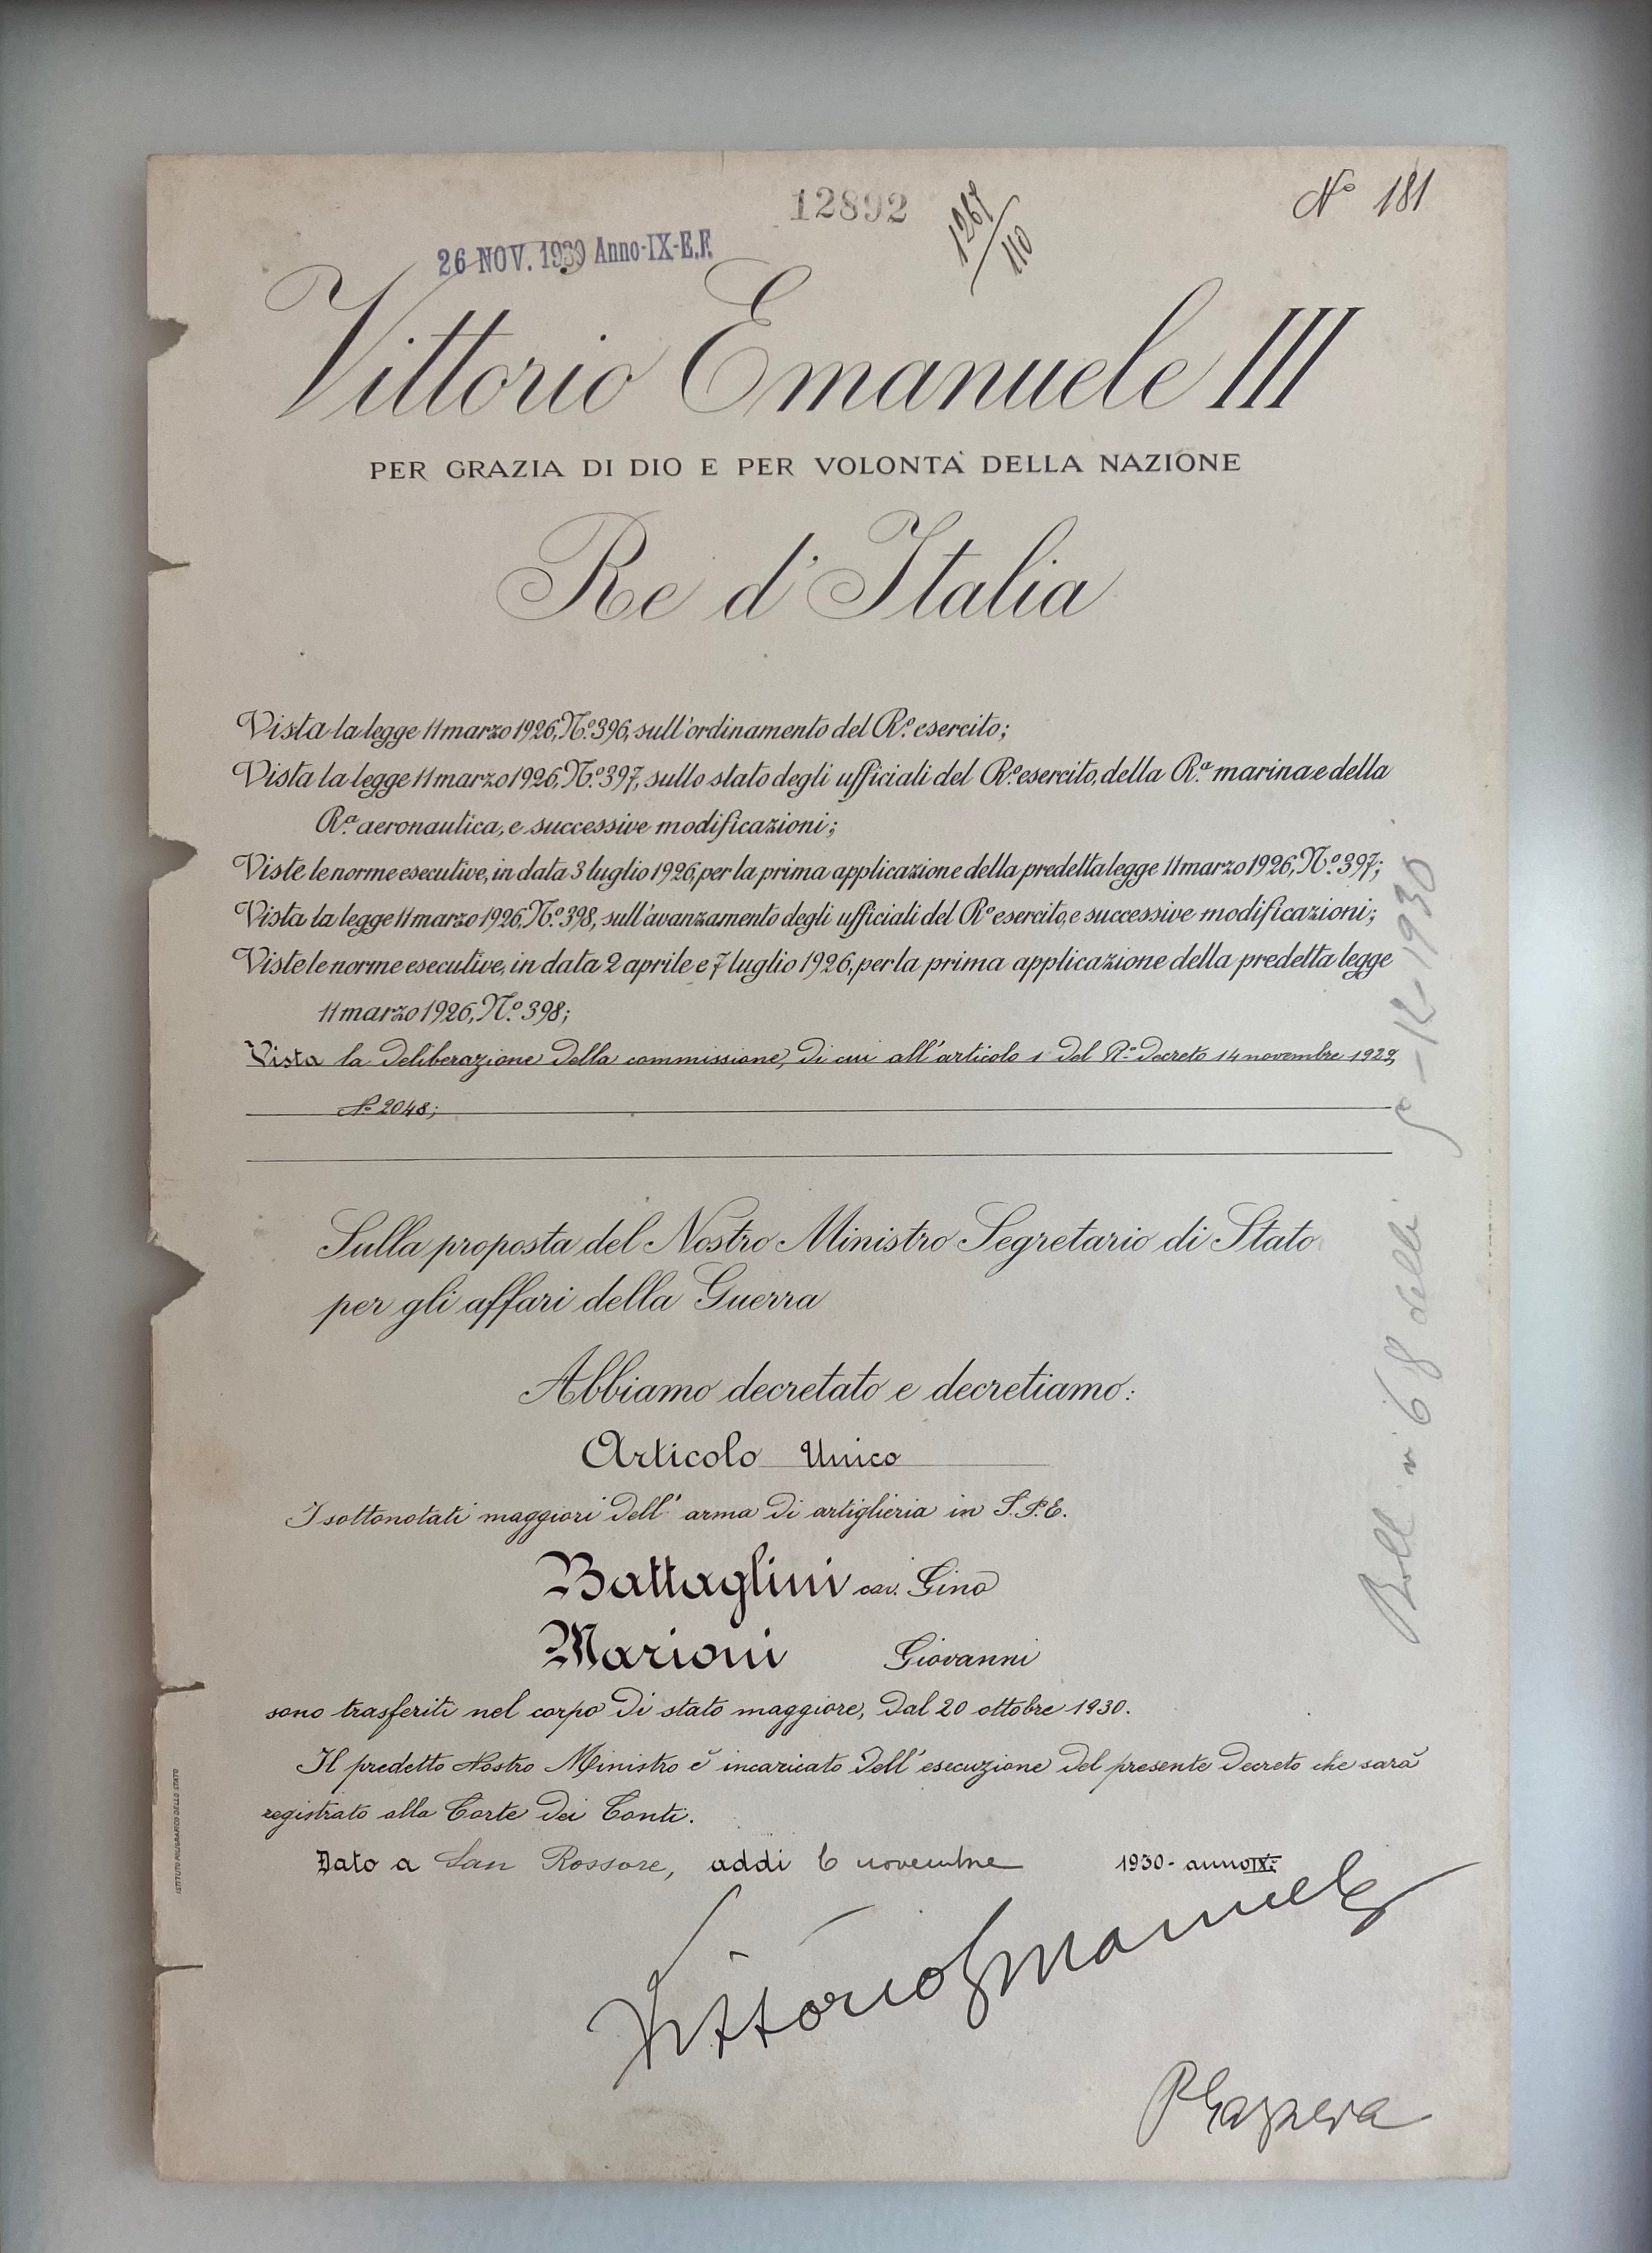 12892
1267/110
Nº 181
26 NOV. 1930 Anno-IX-E.F.
Vittorio Emanuele III
PER GRAZIA DI DIO E PER VOLONTÀ DELLA NAZIONE
Re d'Italia
Vista la legge 11 marzo 1926, Nº. 396, sull'ordinamento del Rº. esercito;
Vista la legge 11 marzo 1926, Nº. 397, sullo stato degli ufficiali del Rº. esercito, della Rª. marina e della
Rª. aeronautica, e successive modificazioni;
Viste le norme esecutive, in data 3 luglio 1926, per la prima applicazione della predetta legge 11 marzo 1926, Nº. 397;
Vista la legge 11 marzo 1926, Nº. 398, sull'avanzamento degli ufficiali del Rº esercito, e successive modificazioni;
Viste le norme esecutive, in data 2 aprile e 7 luglio 1926, per la prima applicazione della predetta legge
11 marzo 1926, Nº. 398;
Vista la deliberazione della commissione, di cui all'articolo 1 del Rº decreto 14 novembre 1929,
Nº 2048;
Sulla proposta del Nostro Ministro Segretario di Stato
per gli affari della Guerra
Abbiamo decretato e decretiamo:
Articolo Unico
I sottonotati maggiori dell'arma di artiglieria in S.P.E.
Battaglini cav. Gino
Marioni Giovanni
sono trasferiti nel corpo di stato maggiore, dal 20 ottobre 1930.
Il predetto Nostro Ministro è incaricato dell'esecuzione del presente decreto che sarà
registrato alla Corte dei Conti.
Dato a San Rossore, addì 6 novembre 1930 - anno IXº
Vittorio Emanuele
PGazzera
Boll. nº 68 delli 5-12-1930
ISTITUTO POLIGRAFICO DELLO STATO